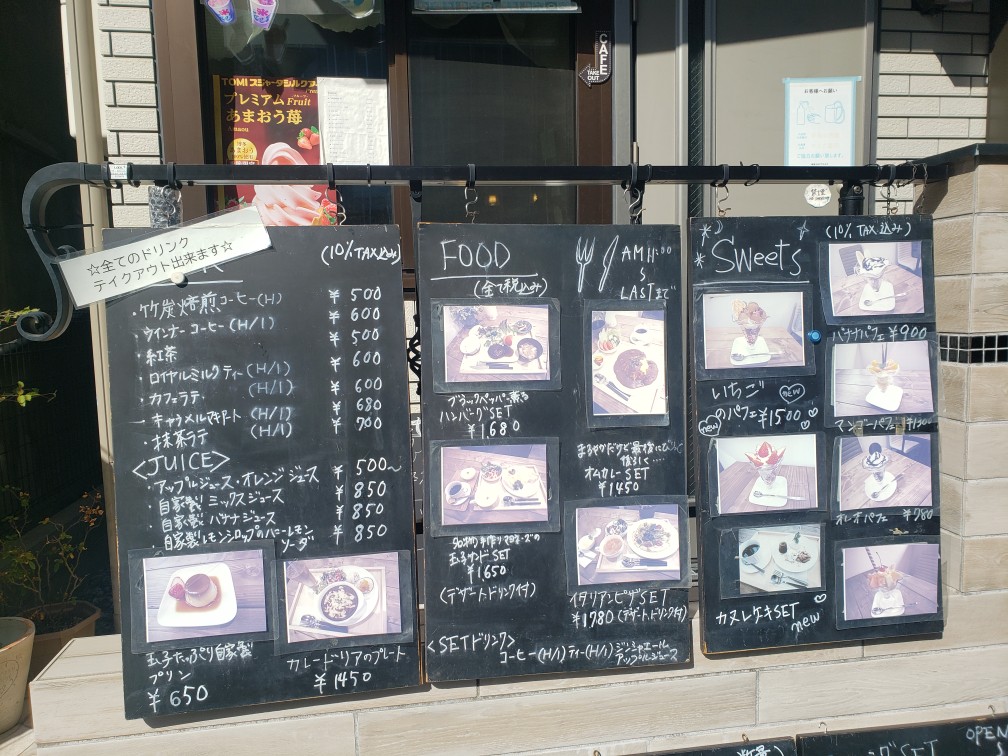 CAFE
TAKE OUT
TOMI スジャータシルクア
プレミアム Fruit
あまおう苺
Amaou
お客様へお願い
☆全てのドリンク
テイクアウト出来ます☆
(10% TAX込み)
・竹炭焙煎コーヒー(H) ¥500
・ウインナーコーヒー(H/I) ¥600
・紅茶 (H/I) ¥500
・ロイヤルミルクティー(H/I) ¥600
・カフェラテ (H/I) ¥600
・キャラメルマキアート (H/I) ¥680
・抹茶ラテ (H/I) ¥700
<JUICE>
・アップルジュース・オレンジジュース ¥500〜
・自家製 ミックスジュース ¥850
・自家製 バナナジュース ¥850
・自家製レモンシロップのハニーレモンソーダ ¥850
玉子たっぷり自家製
プリン
¥650
カレードリアのプレート
¥1450
FOOD
(全て税込み)
AM 11:00
〜
LASTまで
ブラックペッパー薫る
ハンバーグSET
¥1,680
まろやかだけど最後に
後引く・・・・
オムカレーSET
¥1450
玉子サンドSET
¥1650
(デザートドリンク付)
イタリアンピザSET
¥1780 (デザート、ドリンク付)
<SETドリンク>
コーヒー(H/I) ティー(H/I) ジンジャエール
アップルジュース
Sweets
(10% TAX込み)
バナナパフェ ¥900
いちご
new
のパフェ ¥1500
new
マンゴーパフェ ¥1300
オレオパフェ ¥980
カヌレケーキSET
new
OPEN